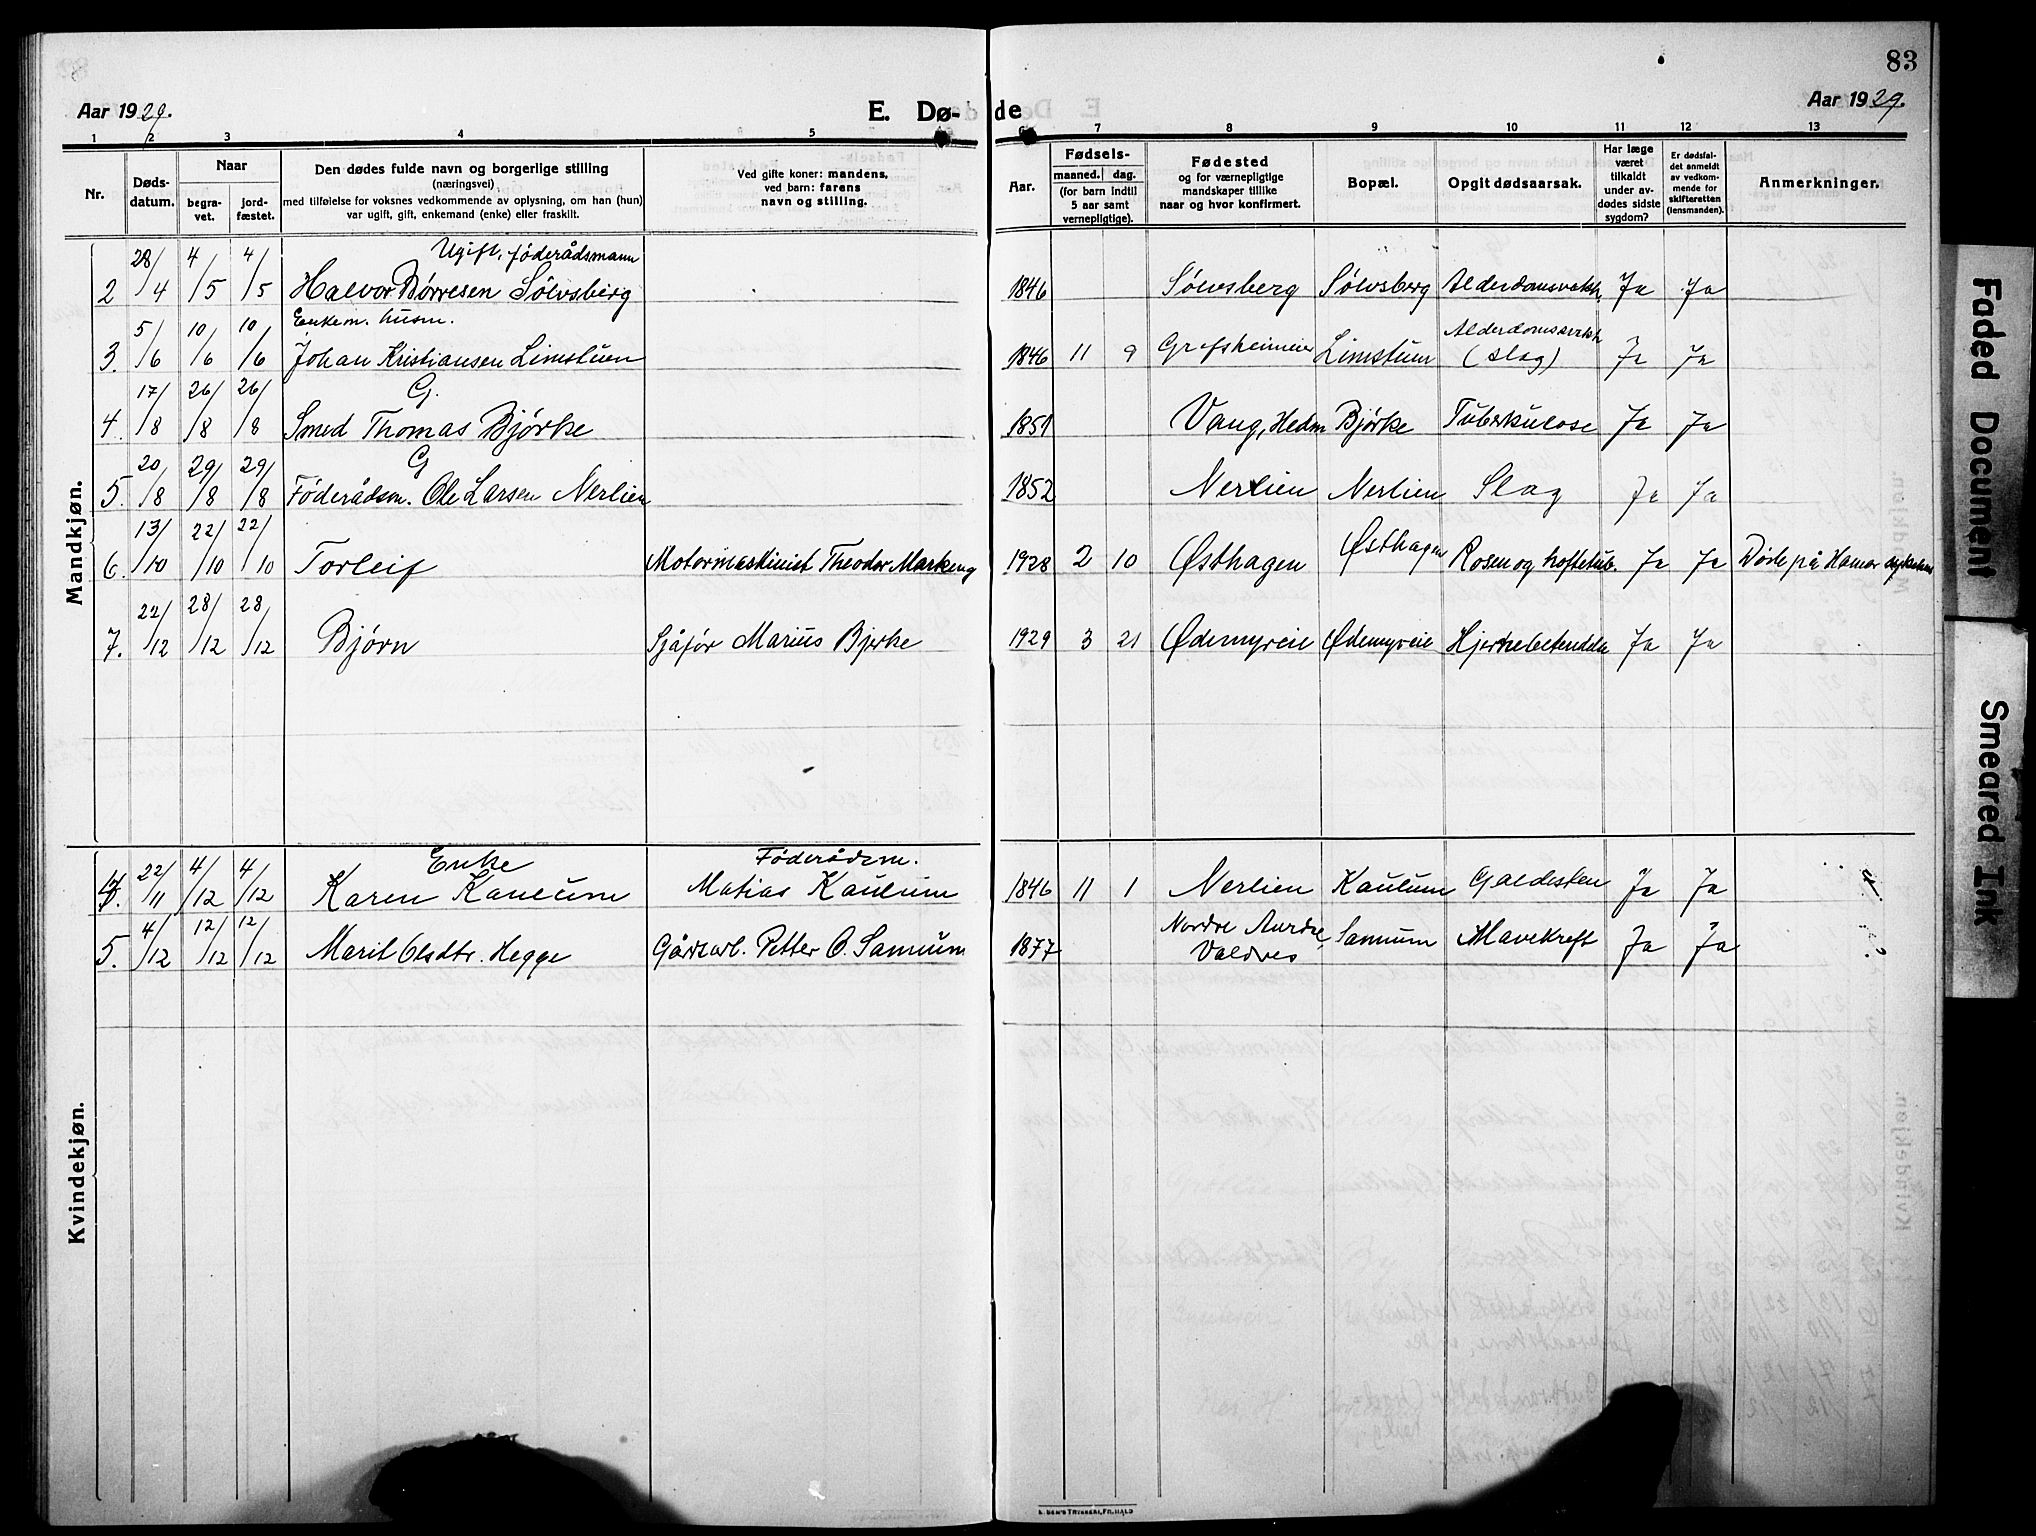 83
Aar 1929.
E. Dø-
de
Aar 1929.
1 2 3 4 5 6 7 8 9 10 11 12 13
Nr.
Døds-
datum.
Naar
begra-
vet.
jord-
fæstet.
Den dødes fulde navn og borgerlige stilling
(næringsvei)
med tilføielse for voksnes vedkommende av oplysning, om han (hun)
var ugift, gift, enkemand (enke) eller fraskilt.
Ved gifte koner: mandens,
ved barn: farens
navn og stilling.
Aar.
Fødsels-
maaned. dag.
(for barn indtil
5 aar samt
vernepligtige).
Fødested
og for værnepligtige
mandskaper tillike
naar og hvor konfirmert.
Bopæl.
Opgit dødsaarsak.
Har læge
været
tilkaldt
under av-
dødes sidste
sygdom?
Er dødsfal-
det anmeldt
av vedkom-
mende for
skifteretten
(lensmanden).
Anmerkninger.
Mandkjøn.
Ugift, föderådsmann
2 28/4 4/5 4/5 Halvor Børresen Sölvsberg 1846 Sölvsberg Sölvsberg Alderdomsvakh. Ja Ja
Enkem. husm.
3. 5/6 10/6 10/6 Johan Kristiansen Limstuen 1846 11 9 Grefsheimeie Limstuen Alderdomssvakh (slag) Ja Ja
G.
4. 17/8 26/8 26/8 Smed Thomas Bjørke 1851 Vang, Hedm Bjørke Tuberkulose Ja Ja
G
5. 20/8 29/8 29/8 Föderådsm. Ole Larsen Nerlien 1852 Nerlien Nerlien Slag Ja Ja
6. 13/10 22/10 22/10 Torleif Motormaskinist Theodor Markeng 1928 2 10 Østhagen Østhagen Rosen og hoftetub. Ja Ja Døde på Hamar sykehus
7. 22/12 28/12 28/12 Bjørn Sjåfør Marius Bjerke 1929 3 21 Ødemyreie Ødemyreie Hjernebetendelse Ja Ja
Kvindekjøn.
Enke Föderådsm.
4. 22/11 4/12 4/12 Karen Kaulum Matias Kaulum 1846 11 1 Nerlien Kaulum Galdesten Ja Ja
5. 4/12 12/12 12/12 Marit Olsdtr. Hegge Gårdsarb. Petter O. Samuum 1877 Nordre Aurdal, Valdres Samuum Mavekreft Ja Ja
Faded Document
Smeared Ink